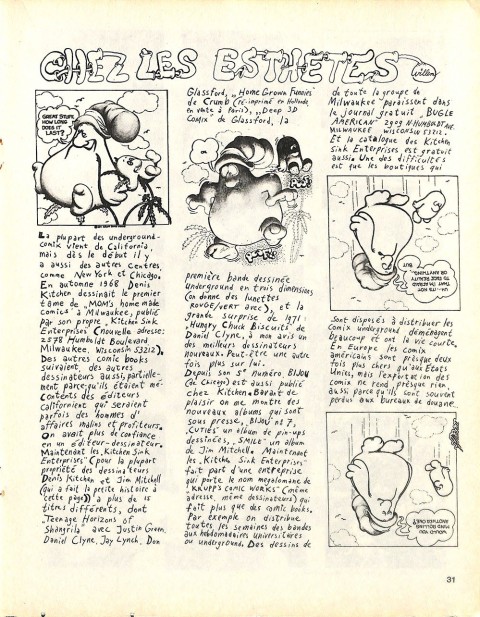 CHEZ LES ESTHETES
Willem
GREAT STUFF,
HOW LONG
DOES IT
LAST?
La plupart des underground-
comix vient de California,
mais dès le début il y
a aussi des autres centres,
comme New York et Chicago.
En automne 1968 Denis
Kitchen dessinait le premier
tôme de "MOM'S homemade
Comics" à Milwaukee, publié
par son propre "Kitchen Sink
Enterprises" (nouvelle adresse:
2578 Humboldt Boulevard
Milwaukee, Wisconsin 53212).
Des autres comic books
suivaient, des autres
dessinateurs aussi, partielle-
ment parce qu'ils étaient mé-
contents des éditeurs
Californient qui seraient
parfois des hommes d'
affaires malins et profiteurs.
On avait plus de confiance
en un éditeur-dessinateur.
Maintenant les "Kitchen Sink
Enterprises" (pour la plupart
propriété des dessinateurs
Denis Kitchen et Jim Mitchell
(qui a fait la petite histoire à
cette page)) a plus de 15
titres différents, dont
"Teenage Horizons of
Shangrila" avec Justin Green,
Daniel Clyne, Jay Lynch, Don
Glassford, "Home Grown Funnies"
de Crumb (ré-imprimé en Hollande,
en vente à Paris), "Deep 3D
Comix" de Glassford, la
première bande dessinée
underground en trois dimensions
(on donne des lunettes
ROUGE/VERT avec), et la
grande surprise de 1971:
"Hungry Chuck Biscuits" de
Daniel Clyne, à mon avis un
des meilleurs dessinateurs
nouveaux. Peut-être une autre
fois plus sur lui.
Depuis son 5e numéro BIJOU
(de Chicago) est aussi publié
chez Kitchen. Barant de
plaisir on me montre des
nouveaux albums qui sont
sous presse, "BIJOU" nº 7,
"CUTIES" un album de pin-ups
dessinées, "SMILE" un album
de Jim Mitchell. Maintenant
les "Kitchen Sink Enterprises"
fait part d'une entreprise
qui porte le nom megalomane de
"KRUPP'S COMIC WORKS" (même
adresse, même dessinateurs) qui
fait plus que des comic books.
Par exemple on distribue
toutes les semaines des bandes
aux hebdomadaires universitaires
ou underground. Des dessins de
de toute la groupe de
Milwaukee paraissent dans
le journal gratuit "BUGLE
AMERICAN" 2909 N. HUMBOLDT AVE.
MILWAUKEE WISCONSIN 53212.
Et la catalogue des Kitchen
Sink Enterprises est gratuit
aussi. Une des difficultés
est que les boutiques qui
sont disposés à distribuer les
comix underground déménagent
beaucoup et ont la vie courte.
En Europe les comix
américains sont presque deux
fois plus chers qu'aux Etats
Unies, mais l'exportation des
comix ne rend presque rien,
aussi parce qu'ils sont souvent
perdus aux bureaux de douane.
31